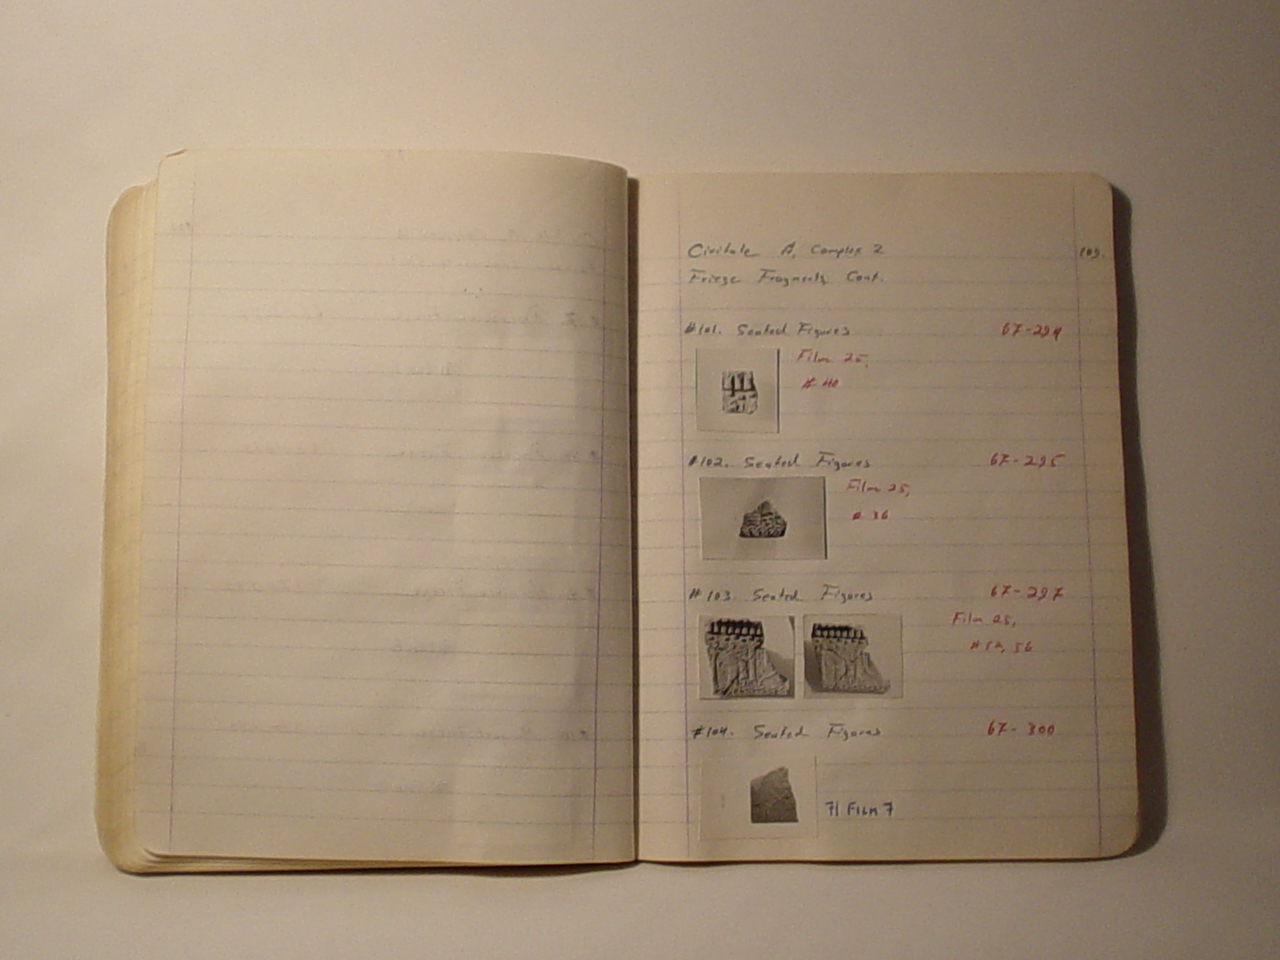 Civitale A, Complex 2
109.
Frieze Fragments Cont.
#101. Seated Figures 67-294
Film 25,
#40
#102. Seated Figures 67-295
Film 25,
#36
#103. Seated Figures 67-297
Film 25,
#52, 56
#104. Seated Figures 67-300
71 FILM 7